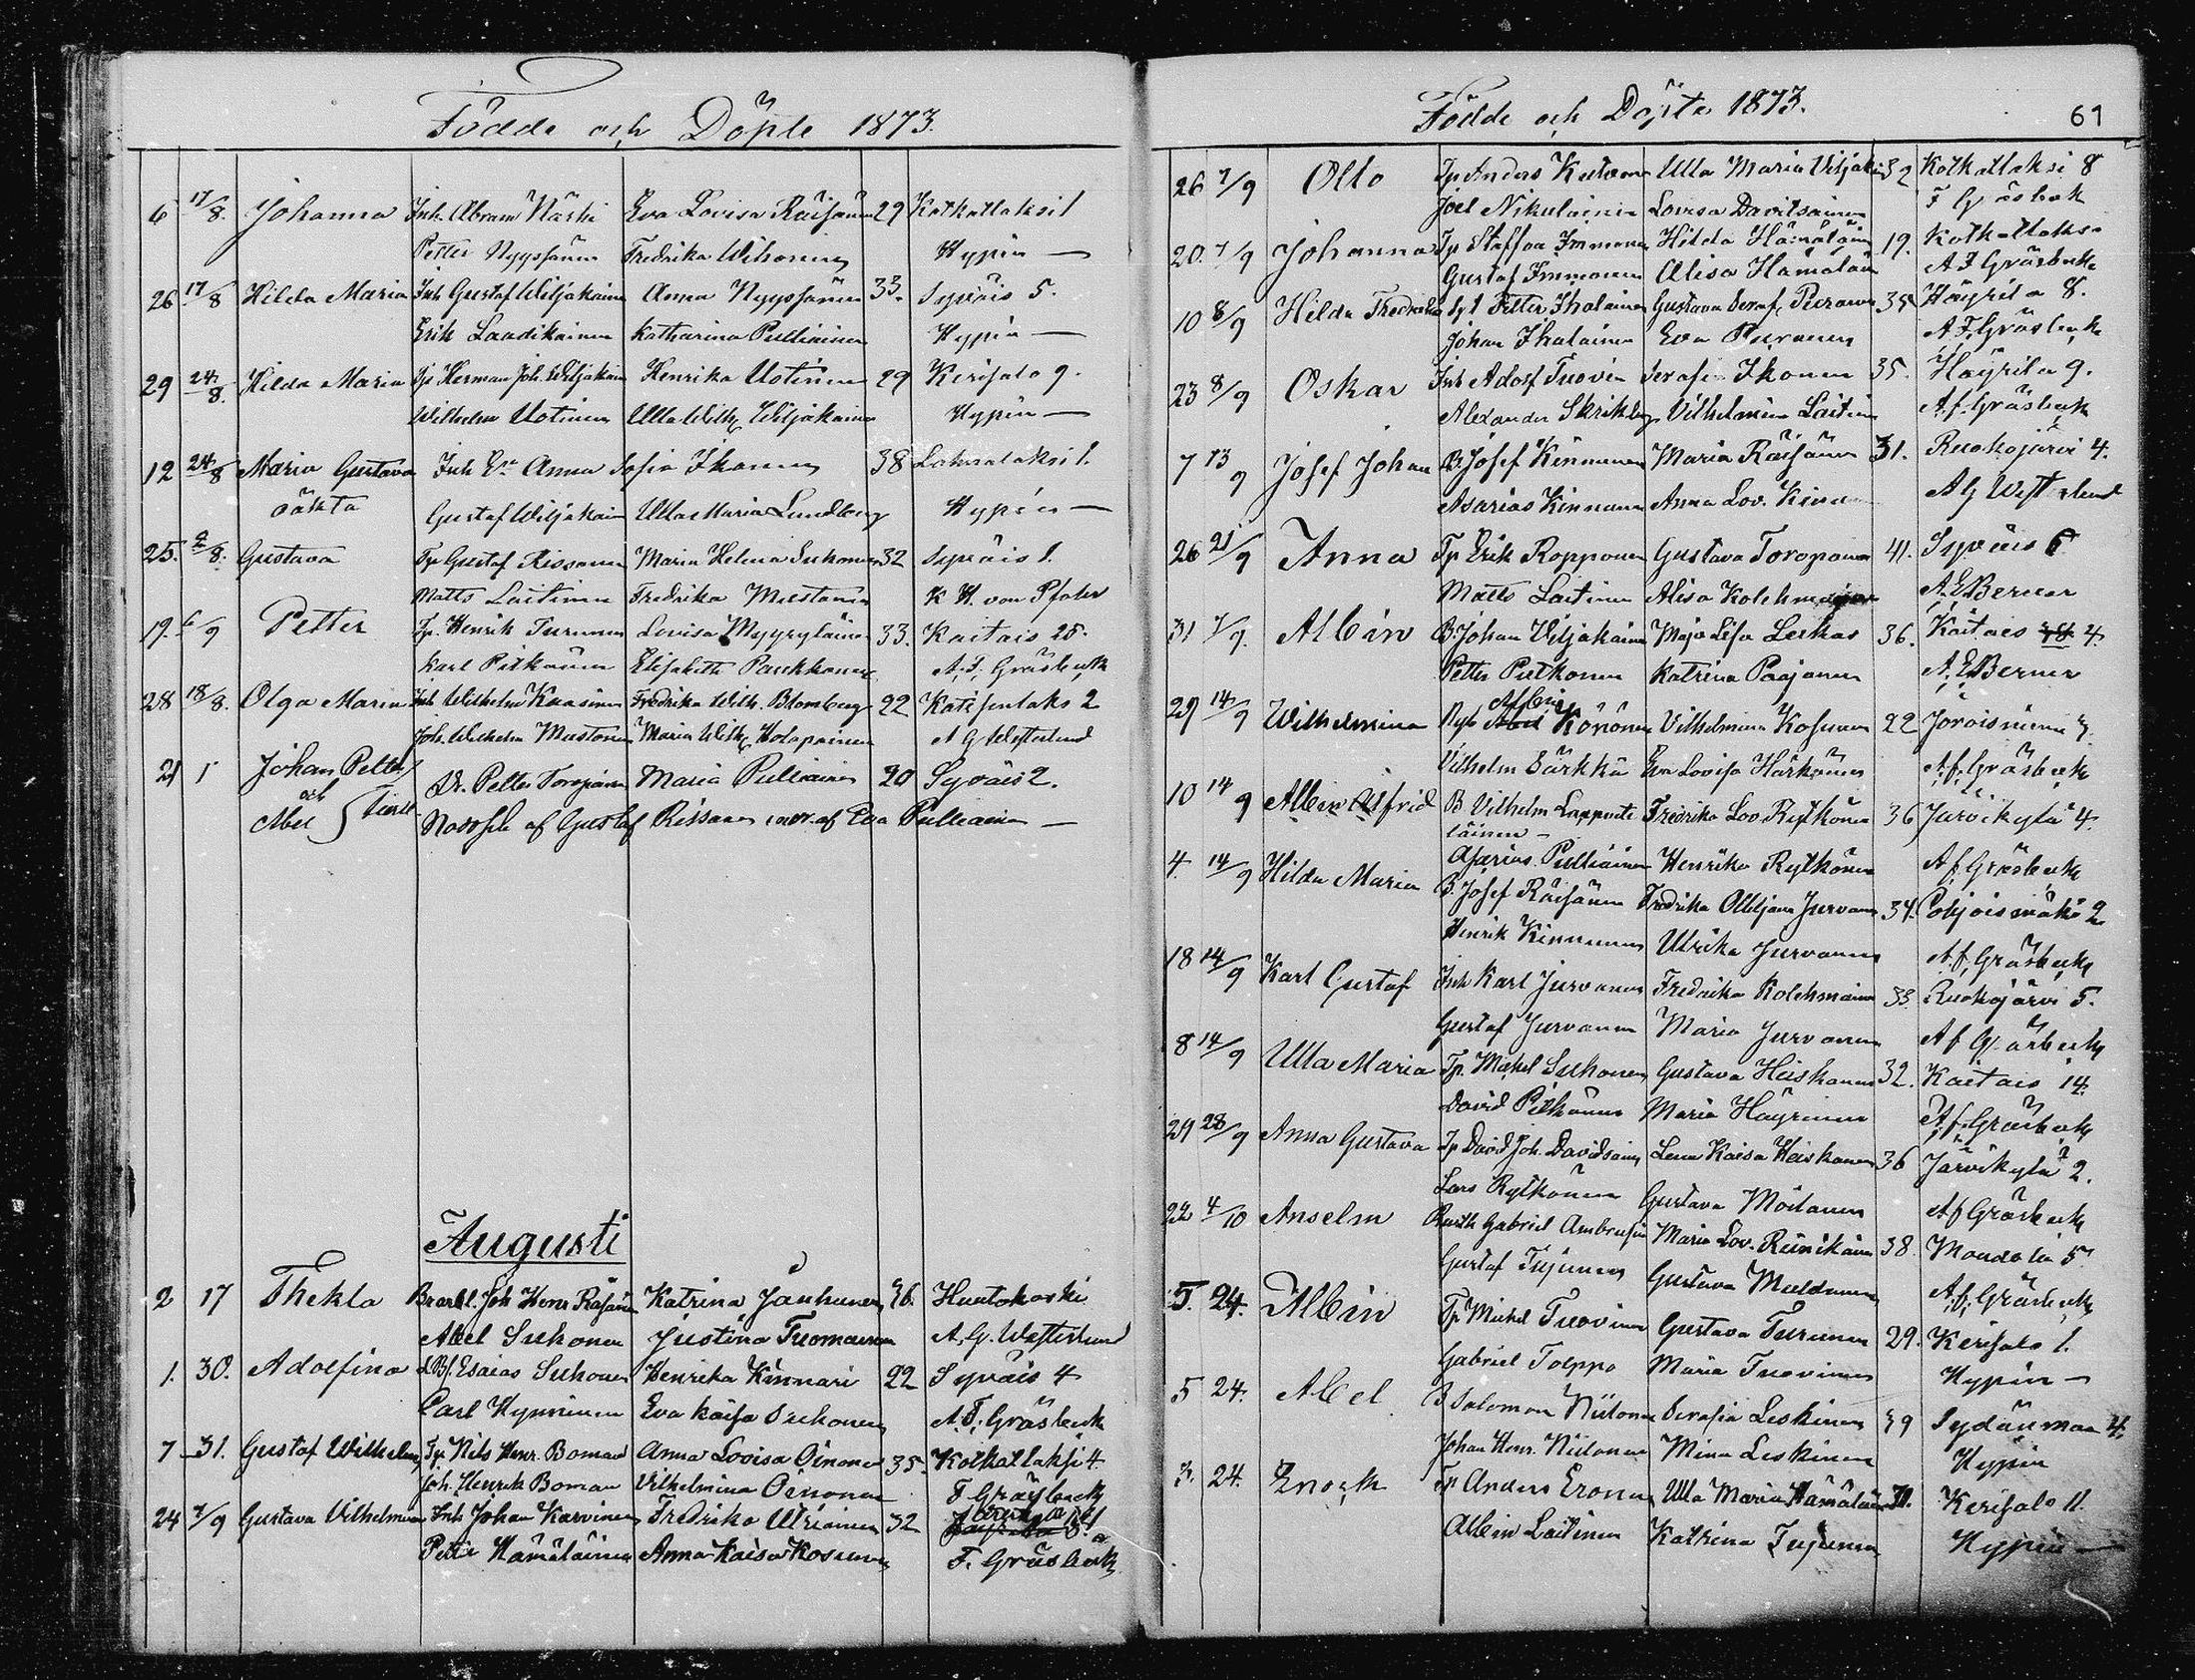 Födde och Döpte 1873.
6 17/8. Johanna Inh. Abram Närhi Eva Lovisa Räisänen 29 Kotkatlaksi 1
Petter Nyyssönen Fredrika Wihonen Hypén —
26 17/8 Hilda Maria Inh Gustaf Wiljakainen Anna Nyyssönen 33. Syväis 5.
Erik Laadikainen Katharina Pulliainen Hypén —
29 24/8. Hilda Maria Tp Herman Joh. Wiljakain Henrika Uotinen 29 Kerisalo 9.
Wilhelm Uotinen Ulla Wilh. Wiljakainen Hypén —
12 24/8 Maria Gustava Inh Anna Sofia Ikonen 38 Lahnalaksi 1.
oäkta Gustaf Wiljakain Ulla Maria Lundberg Hypén —
25. 2/8. Gustava Tp Gustaf Rissanen Maria Helena Suhonen 32 Syväis 1.
Matts Laitinen Fredrika Mustonen K H. von Pfaler
19. 6/9 Petter Tp. Henrik Turunen Lovisa Myyryläinen 33. Kaitais 25.
Karl Pitkänen Elisabeth Paukkonen A. F. Gräsbeck
28 18/8. Olga Maria Inh Wilhelm Kaasinen Fredrika Wilh. Blomberg 22 Katisenlaks 2
Joh. Wilhelm Mustonen Maria Wilh. Holopainen A G Westerlund
21 1 Johan Petter Dr. Petter Toropainen Maria Pulliainen 20 Syväis 2.
och Abel af Gustaf Rissanen af Eva Pulliainen —
Augusti
2 17 Thekla Joh Henr Räsänen Katrina Jauhunen 46. Huutokoski
Abel Suhonen Justina Tuomainen A. G. Westerlund
1. 30. Adolfina Esaias Suhonen Henrika Kinnari 22 Syväis 4
Carl Hynninen Eva Kaisa Suhonen A. F. Gräsbeck
7 31. Gustaf Wilhelm Tp. Nils Henr. Boman Anna Lovisa Oinonen 35. Kotkatlaksi 4
Joh. Henrik Boman Vilhelmina Oinonen F Gräsbeck
24 7/9 Gustava Vilhelmina Inh Johan Karvinen Fredrika Utriainen 32
Petter Hämäläinen Anna Kaisa Kosunen F. Gräsbeck
Födde och Döpte 1873. 61
26 7/9 Otto Tp Anders Kutvonen Ulla Maria Viljakain 32 Kotkatlaksi 8
Joel Nikulainen Lovisa Davitsainen F Gräsbeck
20. 7/9 Johanna Tp Staffan Immonen Hilda Hämäläin 19. Kotkatlaksi
Gustaf Immonen Alisa Hämäläin A F Gräsbeck
10 8/9 Hilda Fredrika Petter Ihalainen Gustava Seraf. Puranen 35 Häyrilä 8.
Johan Ihalainen Eva Puranen A. F. Gräsbeck
23 8/9 Oskar Inh Adolf Tuovin Serafi Ikonen 35. Häyrilä 9.
Alexander Skrikberg Vilhelmina Laitin A. f. Gräsbeck
7 13/9 Josef Johan B. Josef Kinnunen Maria Räisänen 31. Ruokojärvi 4.
Asarias Kinnunen Anna Lov. Kinn A G Westerlund
26 21/9 Anna Tp Erik Ropponen Gustava Toropainen 41. Syväis 6
Matts Laitinen Alisa Kolehmainen A. E Berner
31 7/9. Albin B. Johan Viljakainen Maja Lisa Leskas 36. Kaitais 4.
Petter Putkonen Katrina Paajanen A. E Berner
29 14/9 Wilhelmina Albin Könönen Vilhelmina Kosunen 22 Joroisniemi 7.
Vilhelm Särkkä Eva Lovisa Härkönen A. f. Gräsbeck
10 14/9 Albin Alfrid B Vilhelm Lappvete Fredrika Lov. Rytkönen 36 Järvikylä 4.
läinen —
Asarias Pulliainen Henrika Rytkönen A f. Gräsbeck
4. 14/9 Hilda Maria B. Josef Räisänen Fredrika Jurvanen 34. Pohjoismäki 2
Henrik Kinnunen Ulrika Jurvanen A. f. Gräsbeck
18 14/9 Karl Gustaf Inh Karl Jurvanen Fredrika Kolehmainen 33 Ruokojärvi 5.
Gustaf Jurvanen Maria Jurvanen A f Gräsbeck
8 14/9 Ulla Maria Tp. Mickel Suhonen Gustava Heiskanen 32. Kaitais 14.
David Pitkänen Maria Häyrinen A. f. Gräsbeck
29 28/9 Anna Gustava Tp David Joh. Davidsainen Lena Kaisa Heiskanen 36 Järvikylä 2.
Lars Rytkönen Gustava Moilanen A f Gräsbeck
22 4/10 Anselm Gabriel Ambrusin Maria Lov. Reinikäinen 38. Maavesi 5
Gustaf Tujunen Gustava Muldunen A. f. Gräsbeck
5. 24. Albin Tp Mickel Tuovinen Gustava Turunen 29. Kerisalo 1.
Gabriel Tolppa Maria Tuovinen Hypén —
5 24. Abel B Salomon Niitonen Serafia Leskinen 39 Sydänmaa 4.
Johan Henr. Niitonen Mina Leskinen Hypén
3. 24. Enock Tp Anders Eronen Ulla Maria Hämäläinen 31. Kerisalo 11.
Albin Laitinen Katrina Tujunen Hypén —